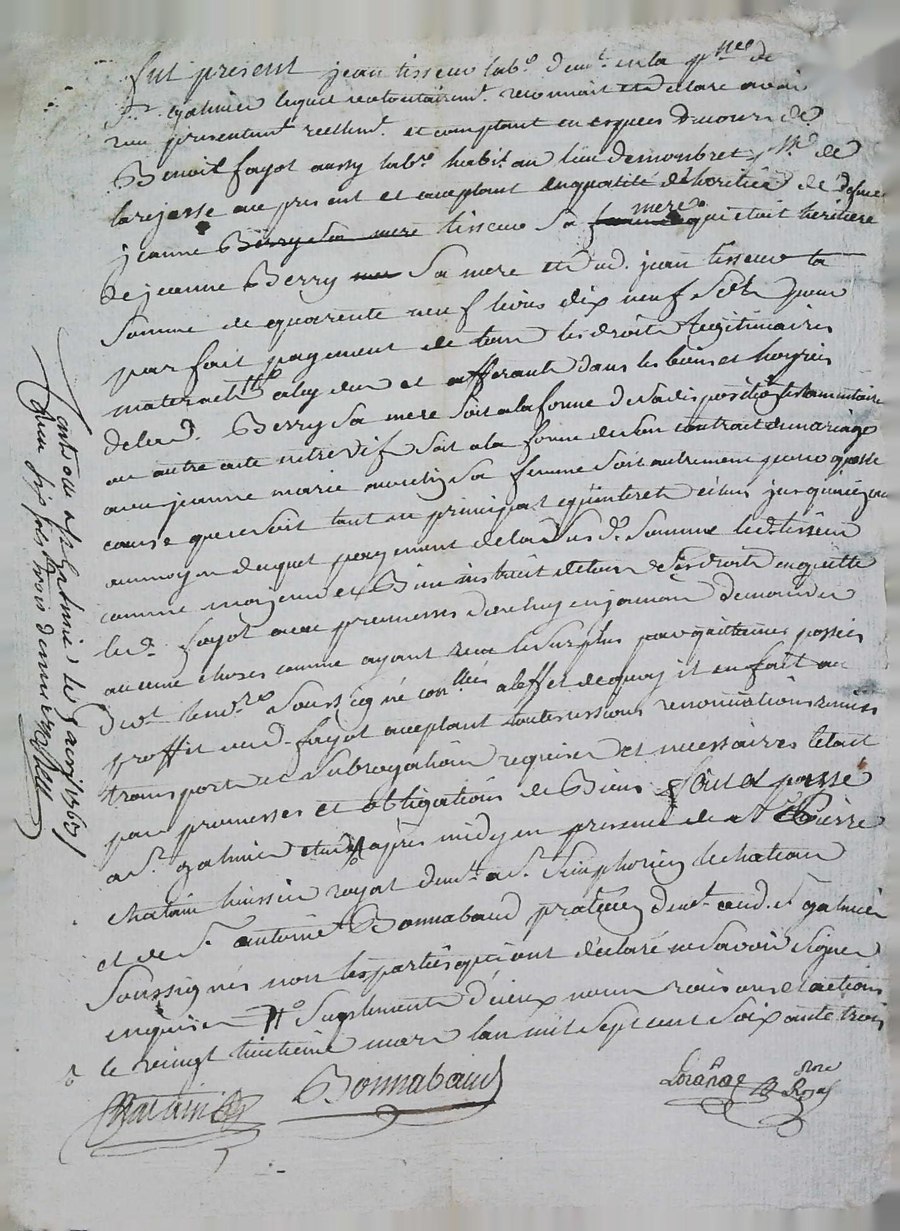 fut present jean tisseur labr. demt. en la psse de
St. galmier lequel volontairemt. reconnait et declare avoir
reçu presentemt. reellemt. et comptant en espèces du cours de
Benoit fayot aussy labr. habit. au lieu de monbret psse. de
larajasse au present et acceptant en qualité de heritier de defunte
jeanne Berry sa mere tisseur sa femme mere qui etait heritiere
de jeanne Berry sa mere et dud. jean tisseur la
somme de quarente neuf livres dix neuf sols pour
parfait payement de tous les droits legitimaires
maternels a luy dus et afferants dans les biens et hoyries
de lad. Berry sa mere soit a la forme de sa disposition testamentaire
ou autre acte entre vif soit a la forme de son contrat de mariage
avec jeanne marie sa femme soit autrement pour quelle
cause que ce soit tant en principal qu'interets eschus jusqu'à
au moyen duquel payement de lad. susd. somme led. tisseur
comme moyenné et Bien instruit de tous ses droits en quitte
led. fayot avec promesses de ne luy en jamais demander
aucune choses comme ayant reçu le surplus par quittances passées
devt. le nore. soussigné conlées a l'effet de quoy il en fait au
proffit dud. fayot acceptant toutes cessions renonciations remises
transport et subrogations requises et necessaires le tout
par promesses et obligations de Biens fait et passé
a St. galmier etude après midy en presence de Sr. Pierre
Chatain huissier royal demt. a St. Simphorien le chateau
et de Sr. antoine Bonnabaud praticien demt. aud. St. galmier
soussignés non les parties qui ont déclaré ne savoir signer
enquises // suplements d'iceux noms raisons et actions
le vingt huitième mars l'an mil sept cent soixante trois
Chatain
Bonnabaud
Loränge
nore Royal
Controllé a St. Galmier le 9 avril 1763
Reçu dix sols trois deniers